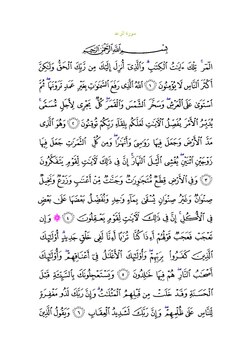 سورة الرعد
بِسْمِ ٱللَّهِ ٱلرَّحْمَٰنِ ٱلرَّحِيمِ
الٓمٓر ۚ تِلْكَ ءَايَٰتُ ٱلْكِتَٰبِ ۗ وَٱلَّذِىٓ أُنزِلَ إِلَيْكَ مِن رَّبِّكَ ٱلْحَقُّ وَلَٰكِنَّ
أَكْثَرَ ٱلنَّاسِ لَا يُؤْمِنُونَ ١ ٱللَّهُ ٱلَّذِى رَفَعَ ٱلسَّمَٰوَٰتِ بِغَيْرِ عَمَدٍ تَرَوْنَهَا ۖ ثُمَّ
ٱسْتَوَىٰ عَلَى ٱلْعَرْشِ ۖ وَسَخَّرَ ٱلشَّمْسَ وَٱلْقَمَرَ ۖ كُلٌّ يَجْرِى لِأَجَلٍ مُّسَمًّى ۚ
يُدَبِّرُ ٱلْأَمْرَ يُفَصِّلُ ٱلْءَايَٰتِ لَعَلَّكُم بِلِقَآءِ رَبِّكُمْ تُوقِنُونَ ٢ وَهُوَ ٱلَّذِى
مَدَّ ٱلْأَرْضَ وَجَعَلَ فِيهَا رَوَٰسِىَ وَأَنْهَٰرًا ۖ وَمِن كُلِّ ٱلثَّمَرَٰتِ جَعَلَ فِيهَا
زَوْجَيْنِ ٱثْنَيْنِ ۖ يُغْشِى ٱلَّيْلَ ٱلنَّهَارَ ۚ إِنَّ فِى ذَٰلِكَ لَءَايَٰتٍ لِّقَوْمٍ يَتَفَكَّرُونَ
٣ وَفِى ٱلْأَرْضِ قِطَعٌ مُّتَجَٰوِرَٰتٌ وَجَنَّٰتٌ مِّنْ أَعْنَٰبٍ وَزَرْعٌ وَنَخِيلٌ
صِنْوَانٌ وَغَيْرُ صِنْوَانٍ يُسْقَىٰ بِمَآءٍ وَٰحِدٍ وَنُفَضِّلُ بَعْضَهَا عَلَىٰ بَعْضٍ
فِى ٱلْأُكُلِ ۚ إِنَّ فِى ذَٰلِكَ لَءَايَٰتٍ لِّقَوْمٍ يَعْقِلُونَ ٤ ۞ وَإِن
تَعْجَبْ فَعَجَبٌ قَوْلُهُمْ أَءِذَا كُنَّا تُرَٰبًا أَءِنَّا لَفِى خَلْقٍ جَدِيدٍ ۗ أُو۟لَٰٓئِكَ
ٱلَّذِينَ كَفَرُوا۟ بِرَبِّهِمْ ۖ وَأُو۟لَٰٓئِكَ ٱلْأَغْلَٰلُ فِىٓ أَعْنَاقِهِمْ ۖ وَأُو۟لَٰٓئِكَ
أَصْحَٰبُ ٱلنَّارِ ۖ هُمْ فِيهَا خَٰلِدُونَ ٥ وَيَسْتَعْجِلُونَكَ بِٱلسَّيِّئَةِ قَبْلَ
ٱلْحَسَنَةِ وَقَدْ خَلَتْ مِن قَبْلِهِمُ ٱلْمَثُلَٰتُ ۗ وَإِنَّ رَبَّكَ لَذُو مَغْفِرَةٍ
لِّلنَّاسِ عَلَىٰ ظُلْمِهِمْ ۖ وَإِنَّ رَبَّكَ لَشَدِيدُ ٱلْعِقَابِ ٦ وَيَقُولُ ٱلَّذِينَ